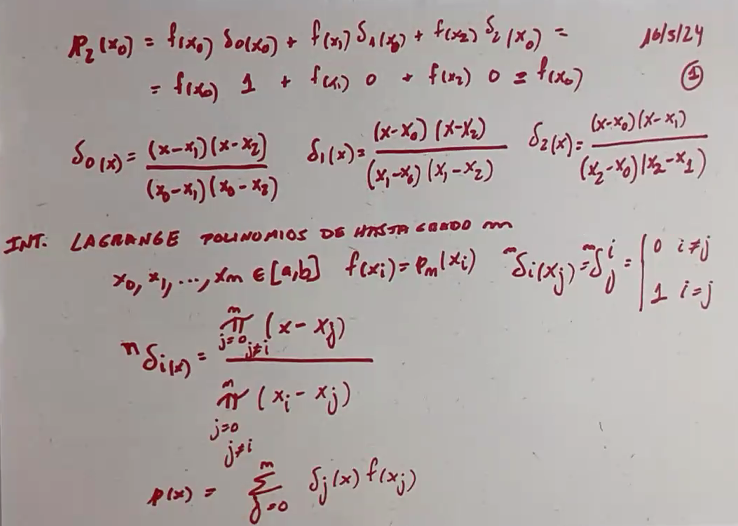 P₂(x₀) = f(x₀) δ₀(x₀) + f(x₁) δ₁(x₀) + f(x₂) δ₂(x₀) = 16/5/24
= f(x₀) 1 + f(x₁) 0 + f(x₂) 0 = f(x₀) ①
δ₀(x) = (x-x₁)(x-x₂) / (x₀-x₁)(x₀-x₂) δ₁(x) = (x-x₀)(x-x₂) / (x₁-x₀)(x₁-x₂) δ₂(x) = (x-x₀)(x-x₁) / (x₂-x₀)(x₂-x₁)
INT. LAGRANGE POLINOMIOS DE HASTA GRADO n
x₀, x₁, ..., xₙ ∈ [a,b] f(xᵢ) = pₙ(xᵢ) ⁿδᵢ(xⱼ) = ⁿδⱼⁱ = { 0 i≠j
1 i=j
ⁿδᵢ(x) = ∏ⁿ j=0 j≠i (x - xⱼ) / ∏ⁿ j=0 j≠i (xᵢ - xⱼ)
p(x) = Σⁿ j=0 δⱼ(x) f(xⱼ)